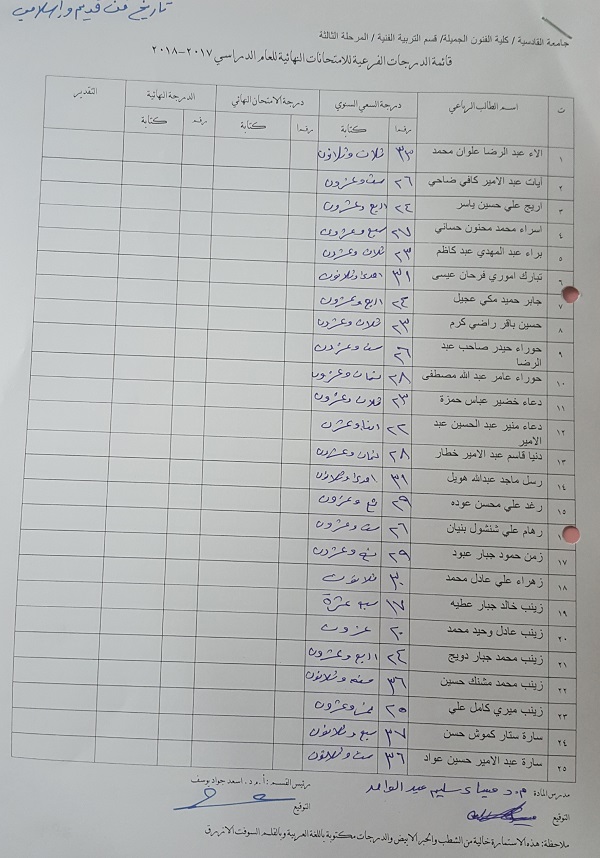 تاريخ فن قديم وإسلامي
جامعة القادسية / كلية الفنون الجميلة/ قسم التربية الفنية / المرحلة الثالثة
قائمة الدرجات الفرعية للامتحانات النهائية للعام الدراسي ٢٠١٧-٢٠١٨
ت اسم الطالب الرباعي درجة السعي السنوي درجة الامتحان النهائي الدرجة النهائية التقدير
رقما كتابة رقما كتابة رقما كتابة
١ الاء عبد الرضا علوان محمد ٣٣ ثلاث وثلاثون
٢ آيات عبد الامير كافي ضاحي ٢٦ ست وعشرون
٣ اريج علي حسين ياسر ٢٤ اربع وعشرون
٤ اسراء محمد محنون حساني ٢٧ سبع وعشرون
٥ براء عبد المهدي عبد كاظم ٢٣ ثلاث وعشرون
٦ تبارك اموري فرحان عيسى ٣١ احدى وثلاثون
٧ جابر حميد مكي عجيل ٢٤ اربع وعشرون
٨ حسين باقر راضي كرم ٢٣ ثلاث وعشرون
٩ حوراء حيدر صاحب عبد الرضا ٢٦ ست وعشرون
١٠ حوراء عامر عبد الله مصطفى ٢٨ ثمان وعشرون
١١ دعاء خضير عباس حمزة ٢٣ ثلاث وعشرون
١٢ دعاء منير عبد الحسين عبد الامير ٢٢ اثنا وعشرون
١٣ دنيا قاسم عبد الامير خطار ٢٨ ثمان وعشرون
١٤ رسل ماجد عبدالله هويل ٣١ احدى وثلاثون
١٥ رغد علي محسن عوده ٢٩ تسع وعشرون
١ رهام علي شنشول بنيان ٢٦ ست وعشرون
١٧ زمن حمود جبار عبود ٢٩ تسع وعشرون
١٨ زهراء علي عادل محمد ٣٠ ثلاثون
١٩ زينب خالد جبار عطيه ١٧ سبع عشرة
٢٠ زينب عادل وحيد محمد ٢٠ عشرون
٢١ زينب محمد جبار دويج ٢٤ اربع وعشرون
٢٢ زينب محمد مشنك حسين ٣٦ وثلاثون
٢٣ زينب ميري كامل علي ٢٥ خمس وعشرون
٢٤ سارة ستار كموش حسن ٣٧ سبع وثلاثون
٢٥ سارة عبد الامير حسين عواد ٣٦ ست وثلاثون
مدرس المادة م.د ميساء سليم عبد الواحد رئيس القسم : أ.م.د. اسعد جواد يوسف
التوقيع التوقيع
ملاحظة: هذه الاستمارة خالية من الشطب والحبر الابيض والدرجات مكتوبة باللغة العربية وبالقلم السوفت الازرق